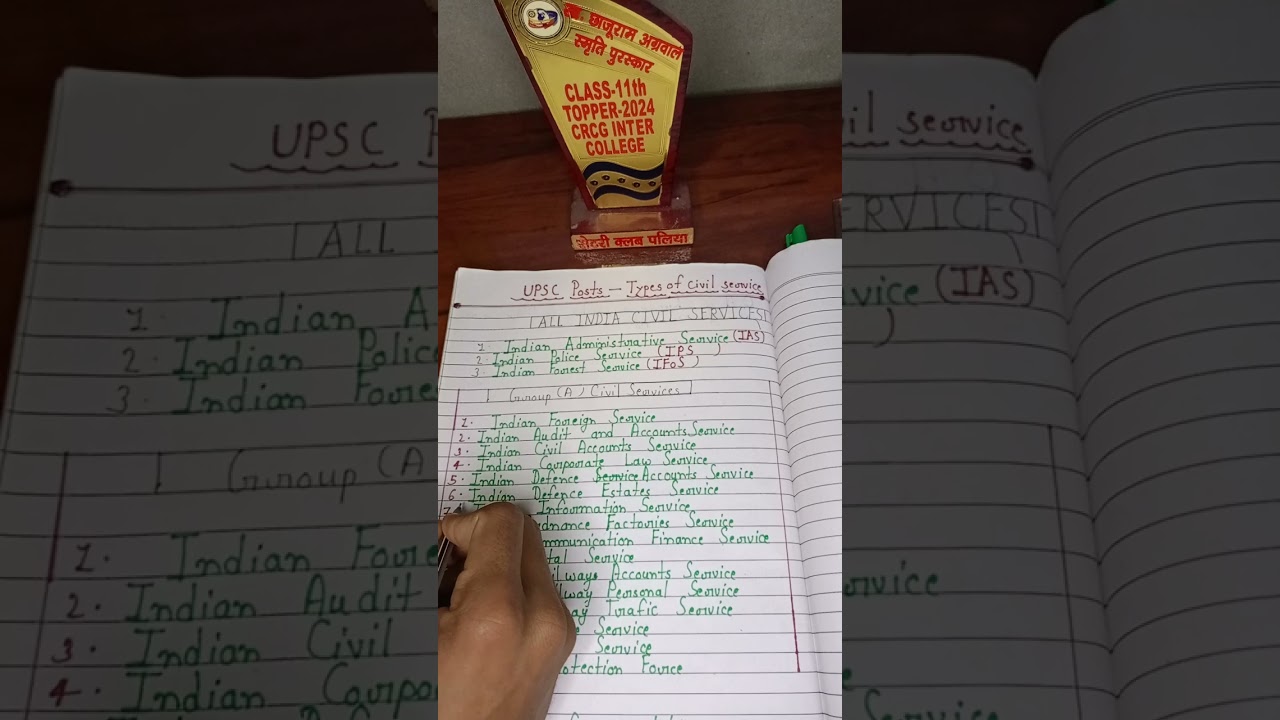 स्व. छाजूराम अग्रवाल
स्मृति पुरस्कार
CLASS-11th
TOPPER-2024
CRCG INTER
COLLEGE
रोटरी क्लब पलिया
UPSC Posts - Types of civil service
ALL INDIA CIVIL SERVICES
1. Indian Administrative Service (IAS)
2. Indian Police Service (IPS)
3. Indian Forest Service (IFoS)
Group (A) Civil Services
1. Indian Foreign Service
2. Indian Audit and Accounts Service
3. Indian Civil Accounts Service
4. Indian Corporate Law Service
5. Indian Defence Service Accounts Service
6. Indian Defence Estates Service
7. Information Service
dnance Factories Service
mmunication Finance Service
tal Service
ilways Accounts Service
lway Personal Service
ay Trafic Service
e Service
Service
otection Force